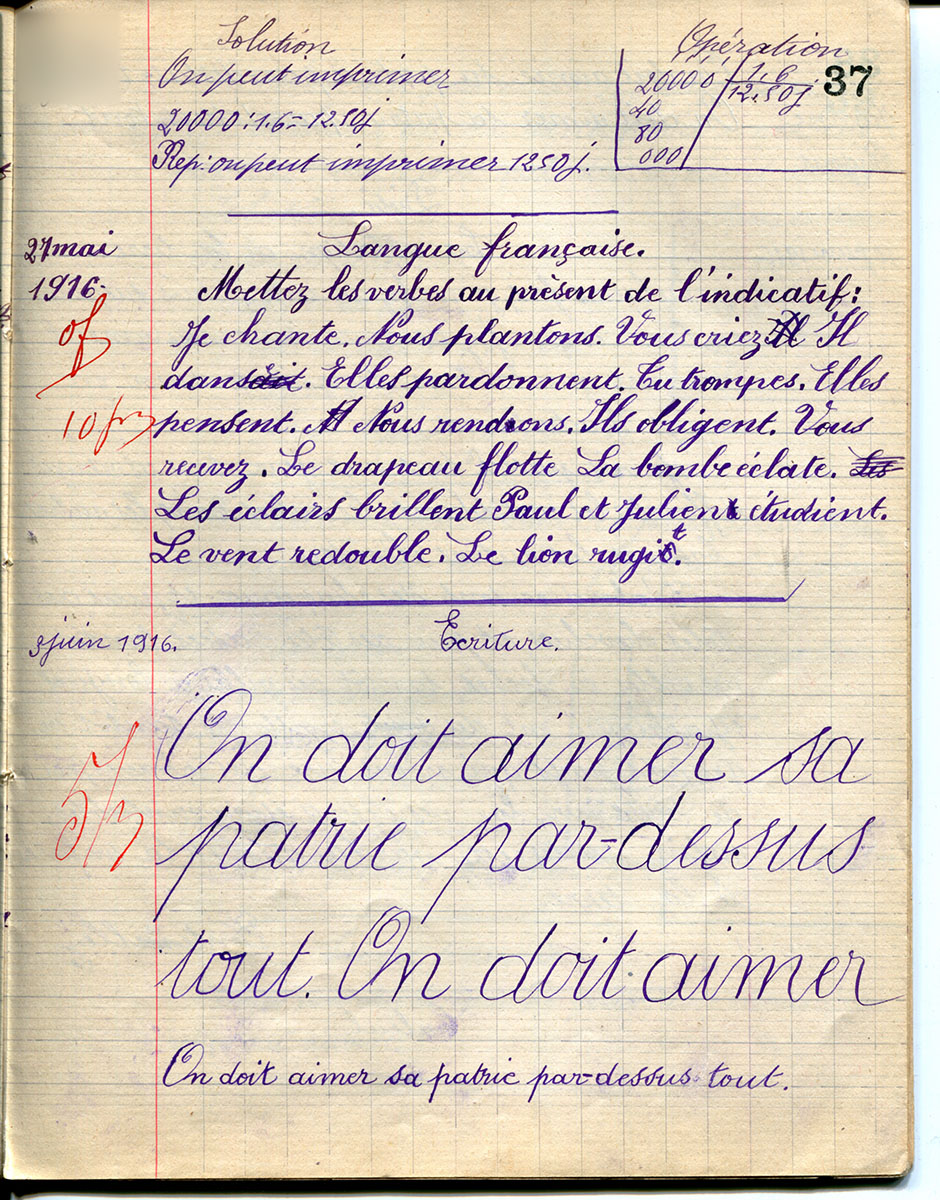 Solution
Opération
On peut imprimer
20000 1,6
12.50j
37
40
20000:1.6= 12.50j
80
000
Rep: on peut imprimer 1250j.
27 mai
1916.
Langue française.
Mettez les verbes au prèsent de l'indicatif:
Je chante. Nous plantons. Vous criez Il
0f
dans. Elles pardonnent. Tu trompes. Elles
10 f
pensent. Nous rendrons. Ils obligent. Vous
recevez. Le drapeau flotte La bombe éclate.
Les éclairs brillent Paul et Julien étudient.
Le vent redouble. Le lion rugit.
3 juin 1916.
Ecriture.
On doit aimer sa
5f
patrie par-dessus
tout. On doit aimer
On doit aimer sa patrie par-dessus tout.